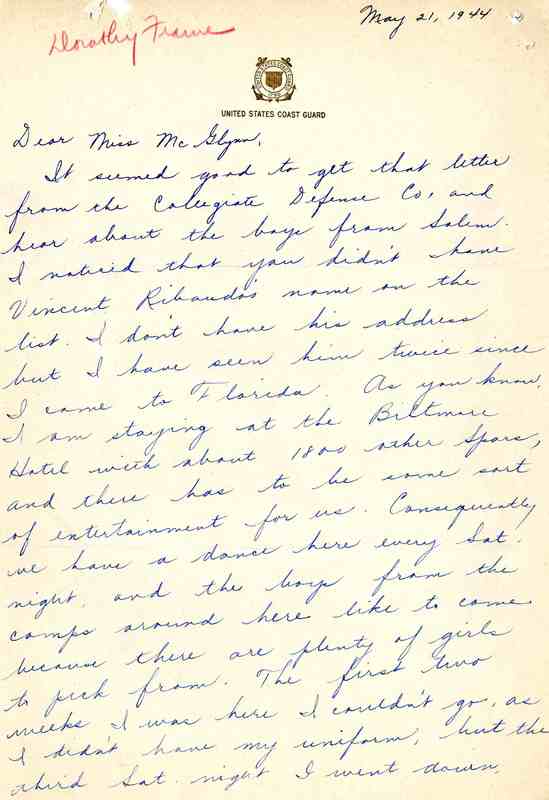 May 21, 1944
Dorothy Frame
UNITED STATES COAST GUARD
Dear Miss McGlynn,
It seemed good to get that letter
from the Collegiate Defense Co. and
hear about the boys from Salem.
I noticed that you didn't have
Vincent Ribaudo's name on the
list. I don't have his address
but I have seen him twice since
I came to Florida. As you know,
I am staying at the Biltmore
Hotel with about 1800 other Spars,
and there has to be some sort
of entertainment for us. Consequently
we have a dance here every Sat.
night, and the boys from the
camps around here like to come
because there are plenty of girls
to pick from. The first two
weeks I was here I couldn't go, as
I didn't have my uniform, but the
third Sat. night I went down,